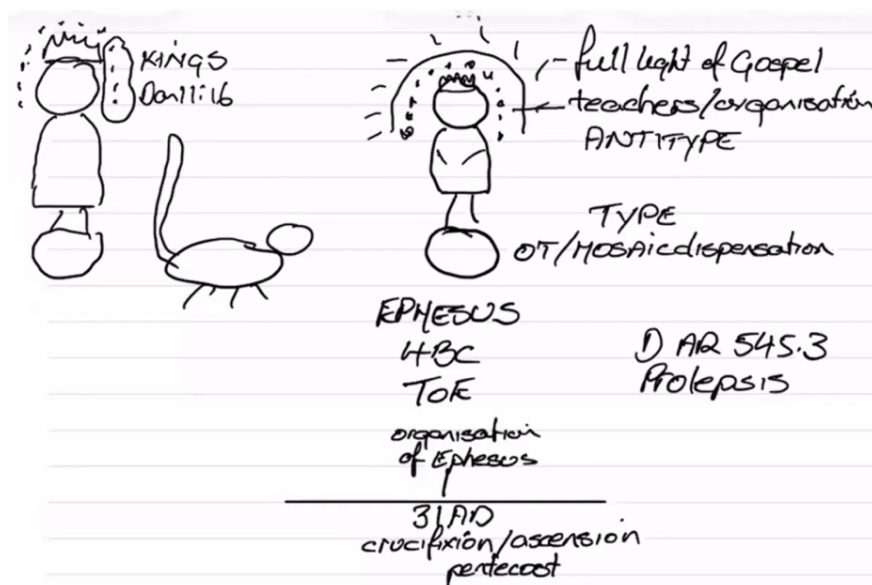 KINGS
Dan 11:16
full light of Gospel
teachers/organisation
ANTITYPE
TYPE
OT/MOSAIC dispensation
EPHESUS
4BC
TOE
organisation
of Ephesus
31AD
crucifixion/ascension
pentecost
D AR 545.3
Prolepsis